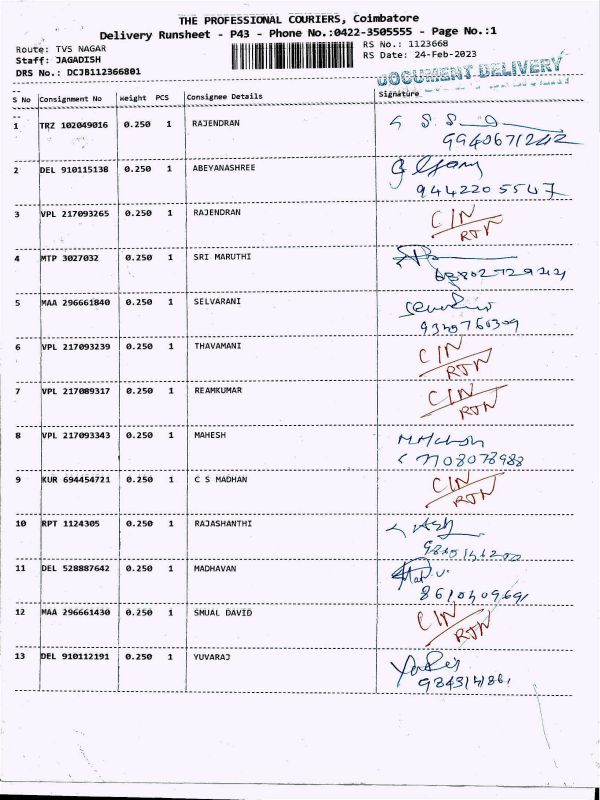 THE PROFESSIONAL COURIERS, Coimbatore
Delivery Runsheet - P43 - Phone No.:0422-3505555 - Page No.:1
Route: TVS NAGAR RS No.: 1123668
Staff: JAGADISH RS Date: 24-Feb-2023
DRS No.: DCJB112366801
DOCUMENT DELIVERY
S No Consignment No Weight PCS Consignee Details Signature
1 TRZ 102049016 0.250 1 RAJENDRAN
9940671242
2 DEL 910115138 0.250 1 ABEYANASHREE
9442205547
3 VPL 217093265 0.250 1 RAJENDRAN C/N
RTN
4 MTP 3027032 0.250 1 SRI MARUTHI
5 MAA 296661840 0.250 1 SELVARANI
6 VPL 217093239 0.250 1 THAVAMANI C/N
RTN
7 VPL 217089317 0.250 1 REAMKUMAR C/N
RTN
8 VPL 217093343 0.250 1 MAHESH
7708078988
9 KUR 694454721 0.250 1 C S MADHAN C/N
RTN
10 RPT 1124305 0.250 1 RAJASHANTHI
11 DEL 528887642 0.250 1 MADHAVAN
8610409691
12 MAA 296661430 0.250 1 SMUAL DAVID C/N
RTN
13 DEL 910112191 0.250 1 YUVARAJ